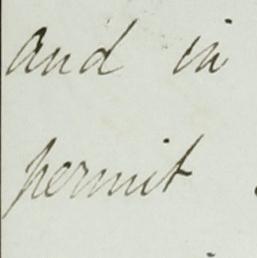 and in
permit